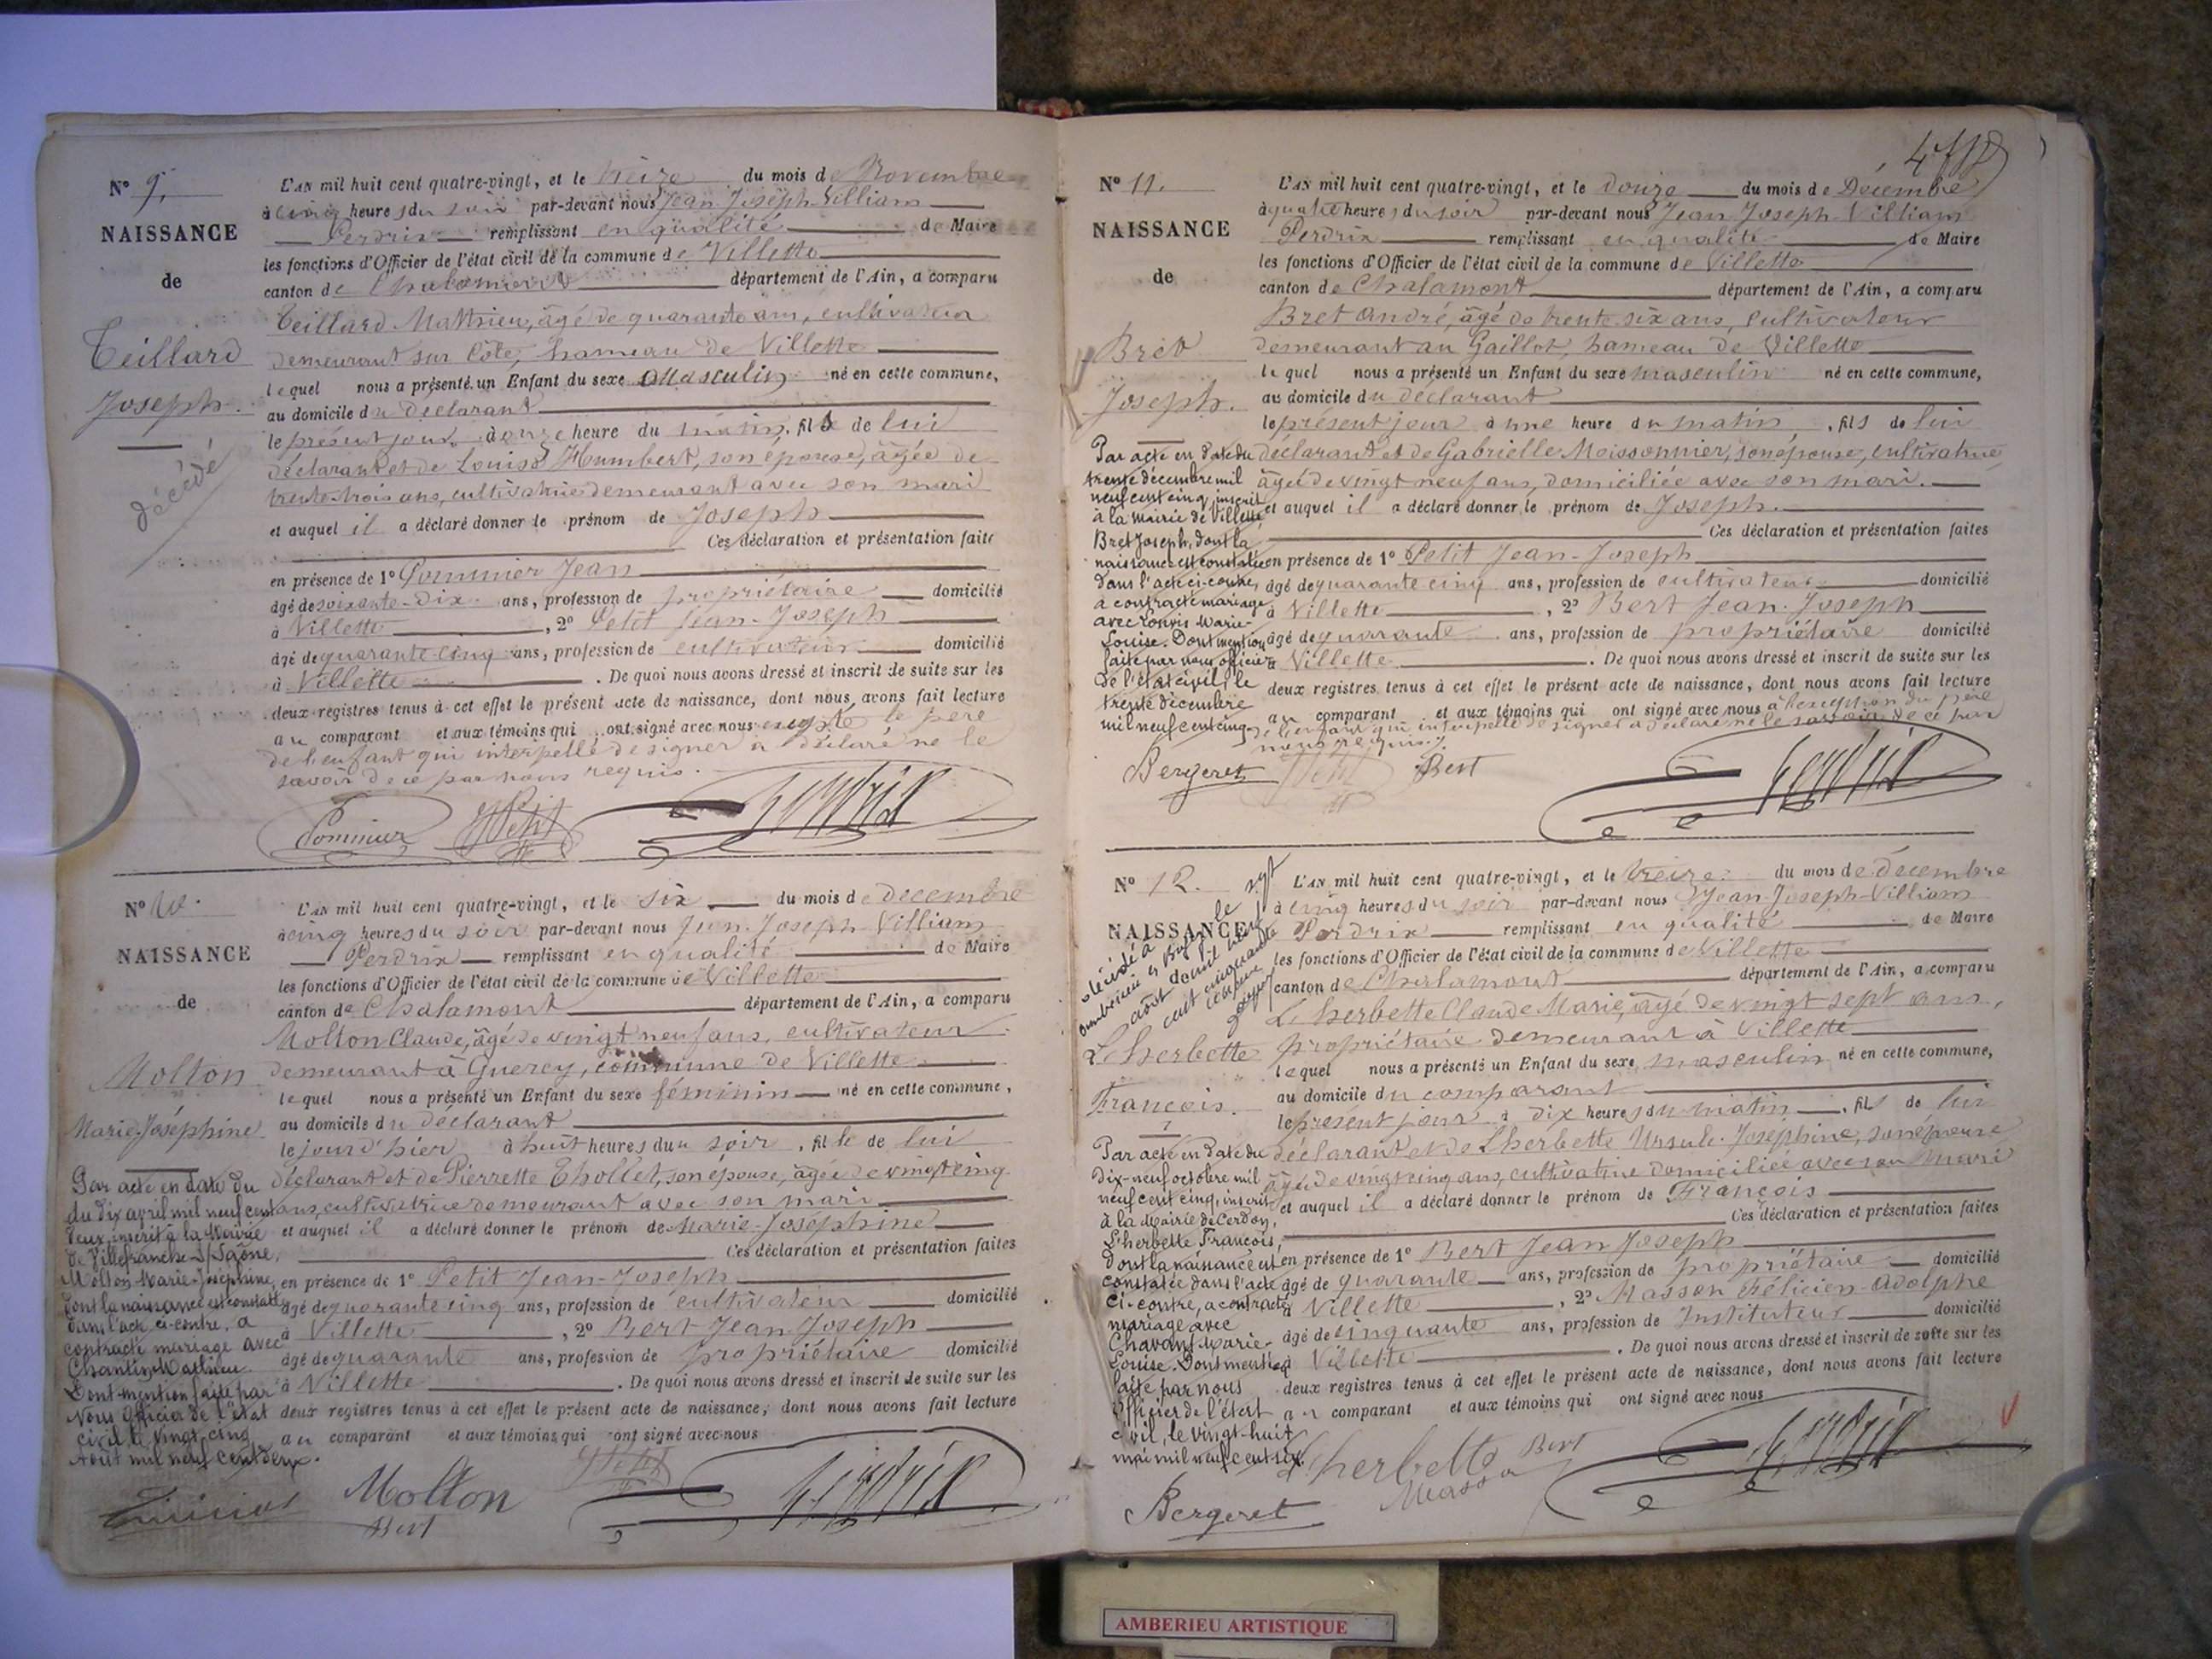 N° 9.
NAISSANCE
de
Teillard
Joseph.
décédé
L'AN mil huit cent quatre-vingt, et le treize du mois de Novembre
à cinq heures du soir par-devant nous Jean Joseph Villiam
Perdrix remplissant en qualité de Maire
les fonctions d'Officier de l'état civil de la commune de Villette
canton de Chalamont département de l'Ain, a comparu
Teillard Mathieu, âgé de quarante ans, cultivateur
demeurant sur Côte, hameau de Villette
lequel nous a présenté un Enfant du sexe Masculin né en cette commune,
au domicile du déclarant
le présent jour à onze heure du matin, fils de lui
déclarant et de Louise Humbert, son épouse, âgée de
trente trois ans, cultivatrice demeurant avec son mari
et auquel il a déclaré donner le prénom de Joseph
Ces déclaration et présentation faite
en présence de 1° Pommier Jean
âgé de soixante-dix ans, profession de propriétaire domicilié
à Villette, 2° Petit Jean-Joseph
âgé de quarante cinq ans, profession de cultivateur domicilié
à Villette. De quoi nous avons dressé et inscrit de suite sur les
deux registres tenus à cet effet le présent acte de naissance, dont nous avons fait lecture
au comparant et aux témoins qui ont signé avec nous excepté le père
de l'enfant qui interpellé de signer a déclaré ne le
savoir de ce par nous requis.
Pommier JJPetit Perdrix
N° 10.
NAISSANCE
de
Molton
Marie-Joséphine
Par acte en date du
du dix avril mil neuf cent
deux, inscrit à la Mairie
de Villefranche s/Saône,
Molton Marie-Joséphine
dont la naissance est constatée
dans l'acte ci-contre, a
contracté mariage avec
Mathieu.
Dont mention faite par
Nous Officier de l'état
civil le vingt cinq
Août mil neuf cent deux.
L'AN mil huit cent quatre-vingt, et le six du mois de décembre
à cinq heures du soir par-devant nous Jean-Joseph Villiam
Perdrix remplissant en qualité de Maire
les fonctions d'Officier de l'état civil de la commune de Villette
canton de Chalamont département de l'Ain, a comparu
Molton Claude, âgé de vingt neuf ans, cultivateur
demeurant à Guercy, commune de Villette
lequel nous a présenté un Enfant du sexe féminin né en cette commune,
au domicile du déclarant
le jour d'hier à huit heures du soir, fille de lui
déclarant et de Pierrette Thollet, son épouse, âgée de vingt cinq
ans, cultivatrice demeurant avec son mari
et auquel il a déclaré donner le prénom de Marie-Joséphine
Ces déclaration et présentation faites
en présence de 1° Petit Jean-Joseph
âgé de quarante cinq ans, profession de cultivateur domicilié
à Villette, 2° Bert Jean Joseph
âgé de quarante ans, profession de propriétaire domicilié
à Villette. De quoi nous avons dressé et inscrit de suite sur les
deux registres tenus à cet effet le présent acte de naissance, dont nous avons fait lecture
au comparant et aux témoins qui ont signé avec nous
Molton JJPetit Perdrix
Bert
N° 11.
NAISSANCE
de
Bret
Joseph.
Par acte en date du
trente décembre mil
neuf cent cinq, inscrit
à la Mairie de Villette,
Bret Joseph, dont la
naissance est constatée
dans l'acte ci-contre,
a contracté mariage
avec Marie-
Louise. Dont mention
faite par nous officier
de l'état civil, le
trente décembre
mil neuf cent cinq.
Bergeret
L'AN mil huit cent quatre-vingt, et le douze du mois de Décembre
à quatre heures du soir par-devant nous Jean Joseph Villiam
Perdrix remplissant en qualité de Maire
les fonctions d'Officier de l'état civil de la commune de Villette
canton de Chalamont département de l'Ain, a comparu
Bret André, âgé de trente six ans, cultivateur
demeurant au Gaillot, hameau de Villette
lequel nous a présenté un Enfant du sexe masculin né en cette commune,
au domicile du déclarant
le présent jour à une heure du matin, fils de lui
déclarant et de Gabrielle Moissonnier, son épouse, cultivatrice
âgée de vingt neuf ans, domiciliée avec son mari.
et auquel il a déclaré donner le prénom de Joseph.
Ces déclaration et présentation faites
en présence de 1° Petit Jean-Joseph
âgé de quarante cinq ans, profession de cultivateur domicilié
à Villette, 2° Bert Jean-Joseph
âgé de quarante ans, profession de propriétaire domicilié
à Villette. De quoi nous avons dressé et inscrit de suite sur les
deux registres tenus à cet effet le présent acte de naissance, dont nous avons fait lecture
au comparant et aux témoins qui ont signé avec nous à l'exception du père
de l'enfant qui interpellé de signer a déclaré ne le savoir de ce par
nous requis.
Petit Bert Perdrix
N° 12.
NAISSANCE
décédé à
Ambérieu en Bugey le sept
août de mil neuf
cent cinquante
Lherbette
François.
Par acte en date du
dix-neuf octobre mil
neuf cent cinq, inscrit
à la Mairie de Cerdon,
Lherbette François,
dont la naissance est
constatée dans l'acte
ci-contre, a contracté
mariage avec
Chavant Marie-
Louise. Dont mention
faite par nous
Officier de l'état
civil, le vingt-huit
mai mil neuf cent six.
Bergeret
L'AN mil huit cent quatre-vingt, et le treize du mois de décembre
à cinq heures du soir par-devant nous Jean-Joseph-Villiam
Perdrix remplissant en qualité de Maire
les fonctions d'Officier de l'état civil de la commune de Villette
canton de Chalamont département de l'Ain, a comparu
Lherbette Claude Marie, âgé de vingt sept ans,
propriétaire demeurant à Villette
lequel nous a présenté un Enfant du sexe masculin né en cette commune,
au domicile du comparant
le présent jour à dix heures du matin, fils de lui
déclarant et de Lherbette Ursule-Joséphine, son épouse
âgée de vingt cinq ans, cultivatrice domiciliée avec son mari
et auquel il a déclaré donner le prénom de François
Ces déclaration et présentation faites
en présence de 1° Bert Jean Joseph
âgé de quarante ans, profession de propriétaire domicilié
à Villette, 2° Masson Félicien-Adolphe
âgé de cinquante ans, profession de Instituteur domicilié
à Villette. De quoi nous avons dressé et inscrit de suite sur les
deux registres tenus à cet effet le présent acte de naissance, dont nous avons fait lecture
au comparant et aux témoins qui ont signé avec nous
Lherbette Bert Perdrix
Masson
AMBERIEU ARTISTIQUE